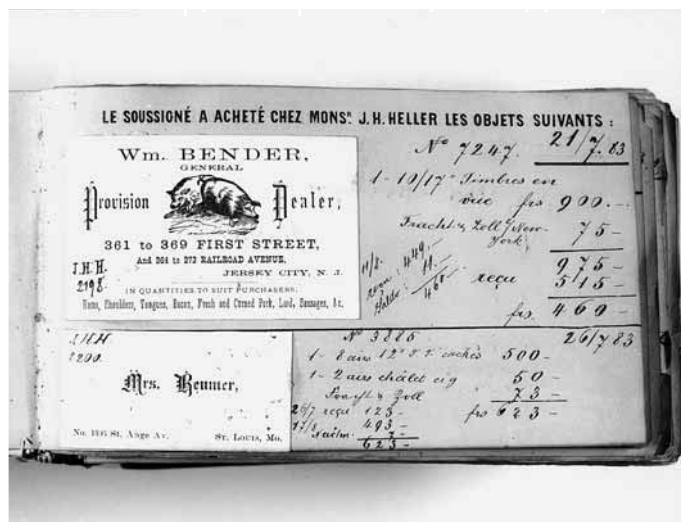 LE SOUSSIGNÉ A ACHETÉ CHEZ MONSR. J. H. HELLER LES OBJETS SUIVANTS :
Wm. BENDER,
GENERAL
Provision Dealer,
361 to 369 FIRST STREET,
And 364 to 373 RAILROAD AVENUE,
JERSEY CITY, N. J.
IN QUANTITIES TO SUIT PURCHASERS;
Hams, Shoulders, Tongues, Bacon, Fresh and Corned Pork, Lard, Sausages, &c.
J. H. H.
2198.
No 7247. 21/7. 83
1 - 10/17" Timbres en
vue frs 900.-
Fracht & Zoll New-
York 75 -
975 -
reçu 515 -
frs 460 -
11/8. reçu : 449.-
11.-
460
J. H. H.
2200.
Mrs. Beumer,
St. Ange Av. ST. LOUIS, MO.
No 3885 26/7 83
1 - 8 airs 12" cachés 500 -
1 - 2 airs châlet cig 50 -
Fracht & Zoll 73 -
26/7 reçu 123 - frs 623 -
17/8 493 -
7 -
623 -